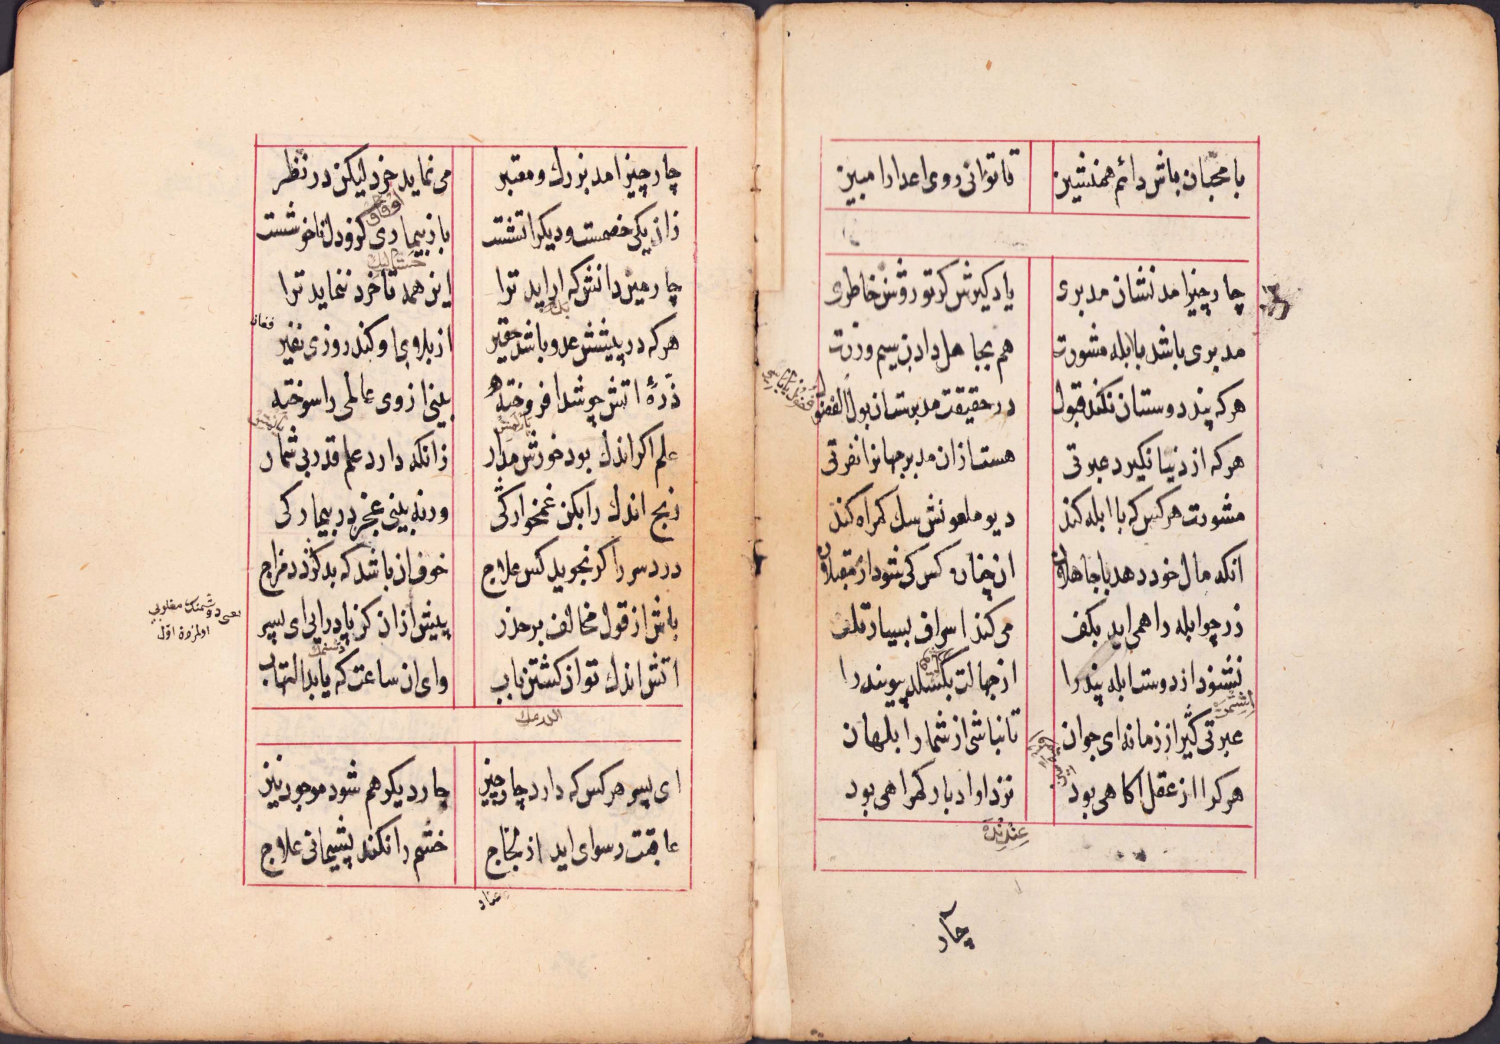 با محبّان باش دائم همنشین تا توانی روی اعدارا مبین
چار چیز امد نشان مدبری یاد کیرش کر تو روشن خاطری
مدبری باشد بابله مشورت هم بجاهل دادن سیم وزرت
هر که پند دوستان نکند قبول در حقیقت مدبرست ان بوالفضول
هر که از دنیا نکیرد عبرتی هست ازان مدبر جهانرا نفرتی
مشورت هر کس که با ابله کند دیو ملعونش سبك کمراه کند
انکه مال خود دهد باجاهلان ان چنان کس کی شود از مقبلان
زر چو ابله را همی اید بکف می کند اسراف بسیار تلف
نشنود از دوست ابله پندرا از جهالت بکسلد پیوندرا
عبرتی کیر از زمانه ای جوان تا نباشی از شمار ابلهان
هر کرا از عقل اکاهی بود نزد او ادبار کمراهی بود
عندنده
چار
چار چیز امد بزرك و معتبر می نماید خرد لیکن در نظر
زان یکی خصمست و دیکر اتشست باز بیماری کزو دل ناخوشست
چارمین دانش که اراید ترا این همه تا خرد ننماید ترا
هر که در پیشش عدو باشد حقیر از بلاوی او کند روزی نفیر
ذرّهٔ اتش چو شد افروخته بینی از وی عالمی را سوخته
علم اکر اندك بود خوارش مدار زانکه دارد علم قدر بی شمار
رنج اندك را بکن غمخوارکی ورنه بینی عجز در بیمارکی
درد سر را کر نجوید کس علاج خوف ان باشد که بد کردد مزاج
باش از قول مخالف بر حذر پیش ازان کز پا درایی ای پسر
اتش اندك توان کشتن باب وای ان ساعت که یابد التهاب
ای پسر هر کس که دارد چار چیز چار دیکر هم شود موجود نیز
عاقبت رسوای اید از لجاج خشم را نکند پشیمانی علاج
عناد
یعنی دشمنك مغلوبی
اولمزدن اوّل